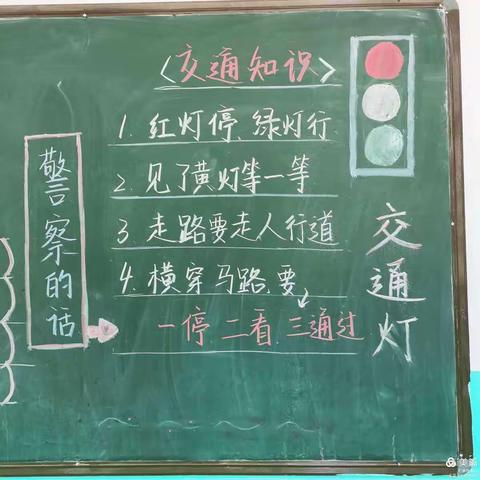 〈交通知识〉
1. 红灯停、绿灯行
2. 见了黄灯等一等
3. 走路要走人行道
4. 横穿马路,要
一停 二看 三通过
警察的话
交通灯